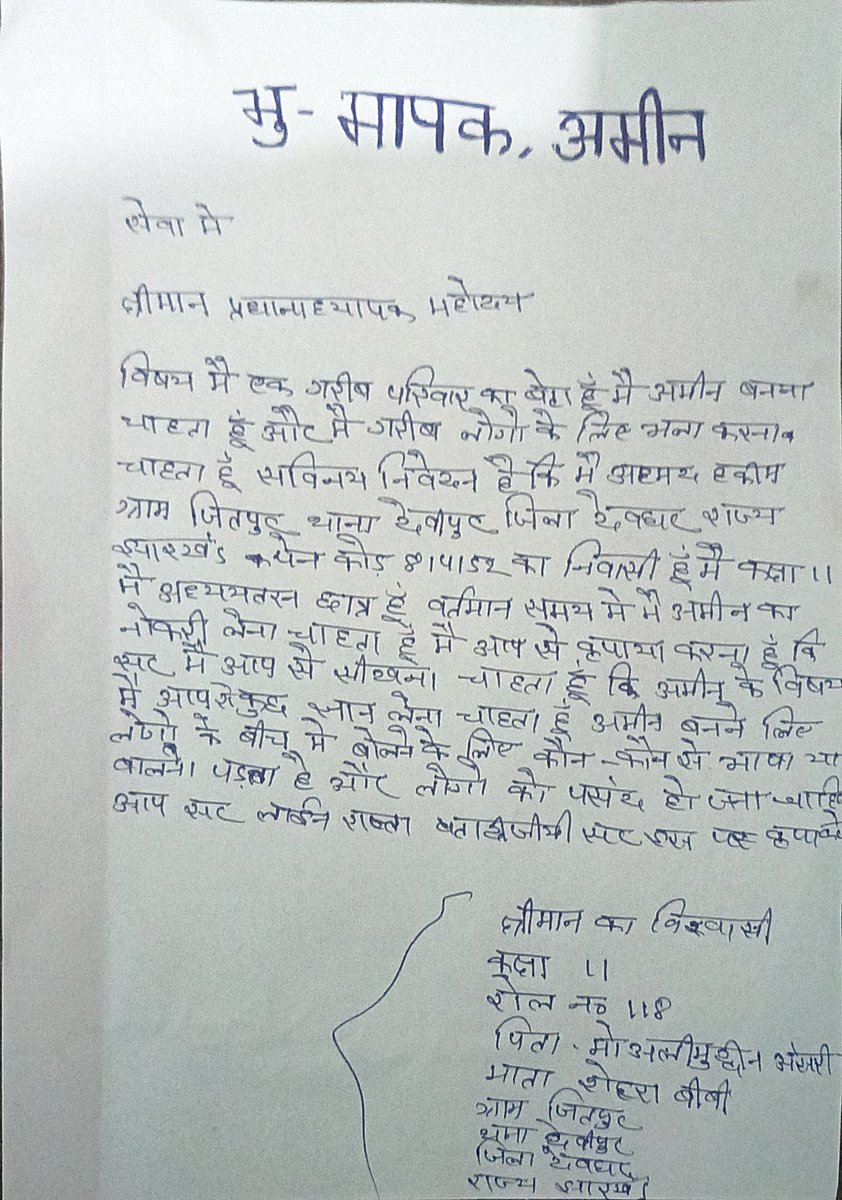 भु - मापक, अमीन
सेवा मे
श्रीमान प्रधानाध्यापक महोदय
विषय मै एक गरीब परिवार का बेटा हूँ मै अमीन बनना
चाहता हूँ और मै गरीब लोगो के लिए भला करना
चाहता हूँ सविनय निवेदन है कि मै अहमद हकीम
ग्राम जितपुर थाना देवीपुर जिला देवघर राज्य
झारखंड पेन कोड़ 814152 का निवासी हूँ मै कक्षा 11
मै अध्ययतरन छात्र हूँ वर्तमान समय मे मै अमीन का
नोकरी लेना चाहता हूँ मै आप से कृपाया करना हूँ कि
सर मै आप से सीखना चाहता हूँ कि अमीन के विषय
मै आपसे कुछ ज्ञान लेना चाहता हूँ अमीन बनने लिए
लोगो के बीच मे बोलने के लिए कौन-कौन से भाषा या
बालना पड़ता है और लोगो को पसंद हो जना चाहि
आप सर लाईन रास्ता सर इस पर कृपा करे
श्रीमान का विश्वासी
कक्षा 11
रोल न० 118
पिता - मो अलीमुद्दीन अंसारी
माता जोहरा बीबी
ग्राम जितपुर
थाना देवीपुर
जिला देवघर
राज्य झारखंड